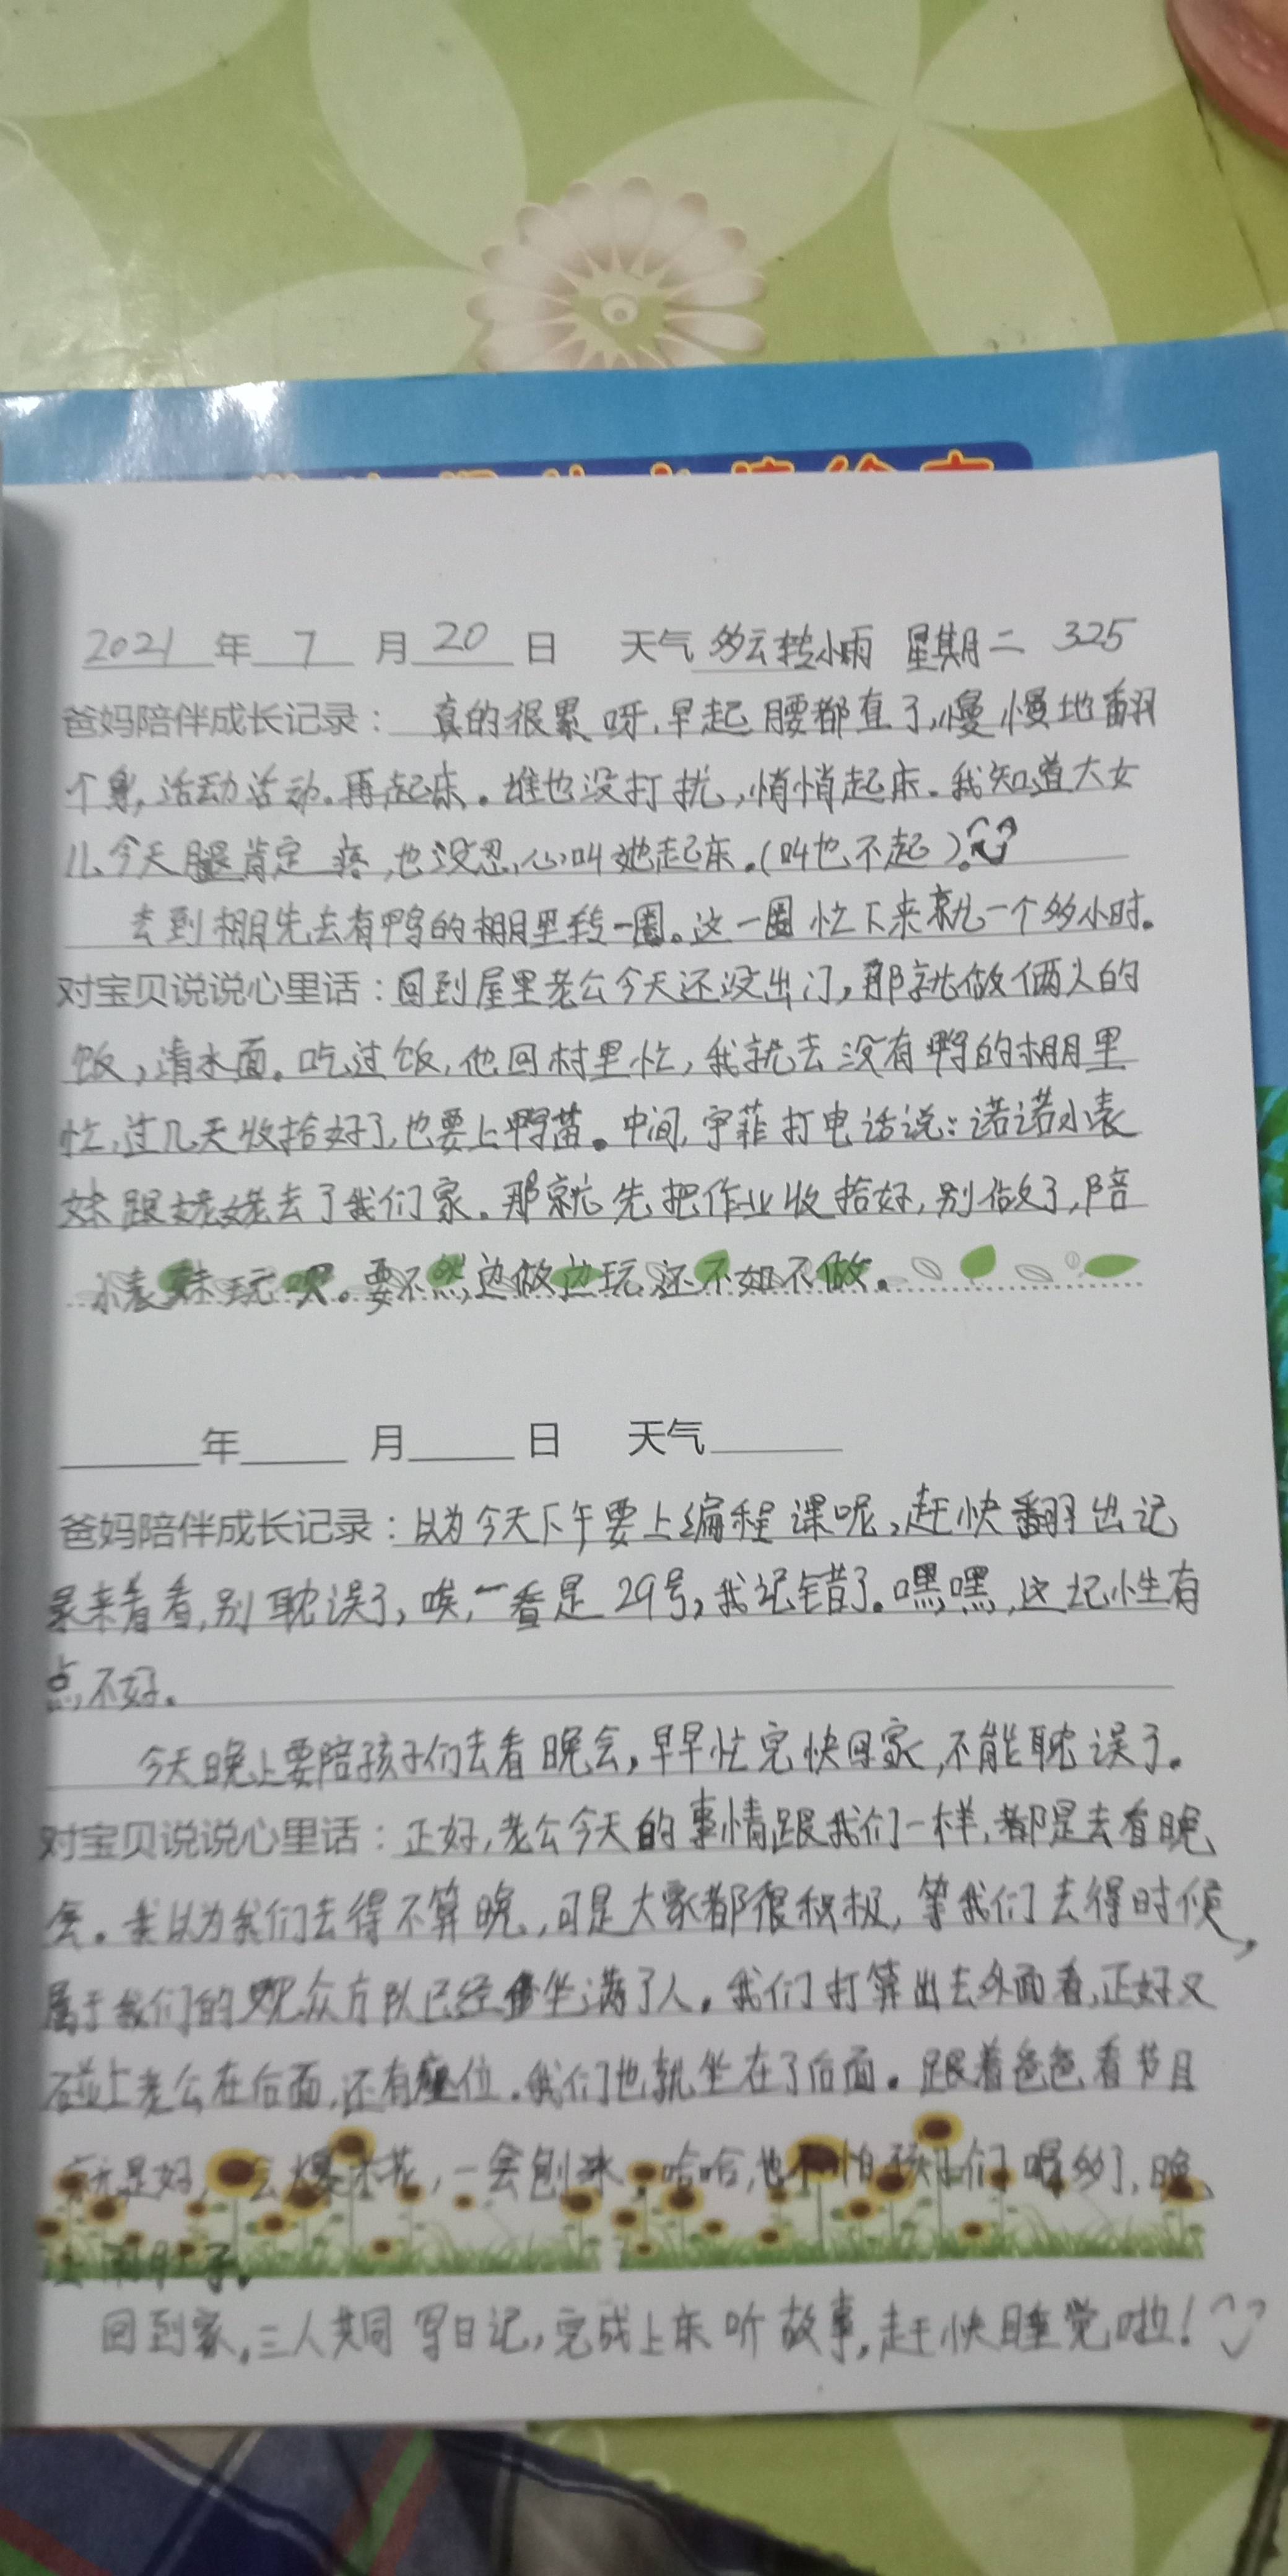 2021年7月20日 天气多云转小雨 星期二 325
爸妈陪伴成长记录：真的很累呀，早起腰都直了，慢慢地翻
个身，活动活动。再起床。谁也没打扰，悄悄起床。我知道大女
儿今天腿肯定疼，也没忍心叫她起床。(叫也不起)。
去到棚先去有鸭的棚里转一圈。这一圈忙下来就一个多小时。
对宝贝说说心里话：回到屋里老公今天还没出门，那就做俩人的
饭，清水面。吃过饭，他回村里忙，我就去没有鸭的棚里
忙，过几天收拾好了，也要上鸭苗。中间，宇菲打电话说：诺诺小表
妹跟姥姥去了我们家。那就先把作业收拾好，别做了，陪
小表妹玩呗。要不然，边做边玩，还不如不做。
年 月 日 天气
爸妈陪伴成长记录：以为今天下午要上编程课呢，赶快翻出记
录来看看，别耽误了，唉，一看是29号，我记错了。嘿嘿，这记性有
点不好。
今天晚上要陪孩子们去看晚会，早早忙完快回家，不能耽误了。
对宝贝说说心里话：正好，老公今天的事情跟我们一样，都是去看晚
会。我以为我们去得不算晚，可是大家都很积极，等我们去得时候，
属于我们的观众方队已经坐满了人。我们打算出去外面看，正好又
碰上老公在后面，还有座位。我们也就坐在了后面。跟着爸爸看节目
就是好，一会爆米花，一会刨冰。哈哈，也不怕孩子们喝多了，晚
上闹肚子。
回到家，三人共同写日记，完成上床听故事，赶快睡觉啦！